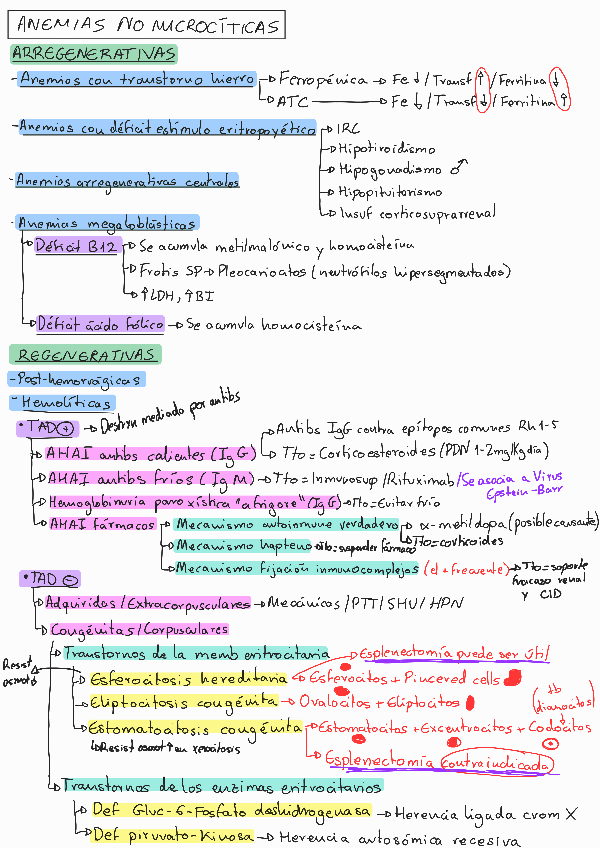 ANEMIAS NO MICROCÍTICAS
ARREGENERATIVAS
- Anemias con transtorno hierro → Ferropénica → Fe ↓ / Transf ↑ / Ferritina ↓
→ ATC → Fe ↓ / Transf ↓ / Ferritina ↑
- Anemias con déficit estímulo eritropoyético → IRC
→ Hipotiroidismo
→ Hipogonadismo ♂
- Anemias arregenerativas centrales
→ Hipopituitarismo
→ Insuf corticosuprarrenal
- Anemias megaloblásticas
→ Déficit B12 → Se acumula metilmalónico y homocisteína
→ Frotis SP → Pleocariocitos (neutrófilos hipersegmentados)
→ ↑LDH, ↑BI
→ Déficit ácido fólico → Se acumula homocisteína
REGENERATIVAS
- Post-hemorrágicas
- Hemolíticas
• TAD ⊕ → Destrucc mediado por anticbs
→ AHAI anticbs calientes (IgG) → Anticbs IgG contra epítopos comunes Rh 1-5
→ Tto = Corticoesteroides (PDN 1-2mg/Kg día)
→ AHAI anticbs fríos (IgM) → Tto = Inmunosup / Rituximab / Se asocia a Virus
Epstein-Barr
→ Hemoglobinuria paroxística "a frigore" (IgG) → Tto = Evitar frío
→ AHAI fármacos → Mecanismo autoinmune verdadero → α-metildopa (posible causante)
→ Tto = corticoides
→ Mecanismo hapteno → Tto = suspender fármaco
→ Mecanismo fijación inmunocomplejos (el + frecuente) → Tto = soporte
fracaso renal
y CID
• TAD ⊖
→ Adquiridas / Extracorpusculares → Mecánicos / PTT / SHU / HPN
→ Congénitas / Corpusculares
→ Transtornos de la memb eritrocitaria → Esplenectomía puede ser útil
Resist
osmot ↓
→ Esferocitosis hereditaria → Esferocitos + Pincered cells
→ Eliptocitosis congénita → Ovalocitos + Eliptocitos
(tb
dianocitos)
→ Estomatocitosis congénita → Estomatocitos + Excentrocitos + Codocitos
↳ Resist osmot ↑ en xerocitosis
→ Esplenectomía contraindicada
→ Transtornos de los enzimas eritrocitarios
→ Def Gluc-6-Fosfato deshidrogenasa → Herencia ligada crom X
→ Def piruvato-Kinasa → Herencia autosómica recesiva